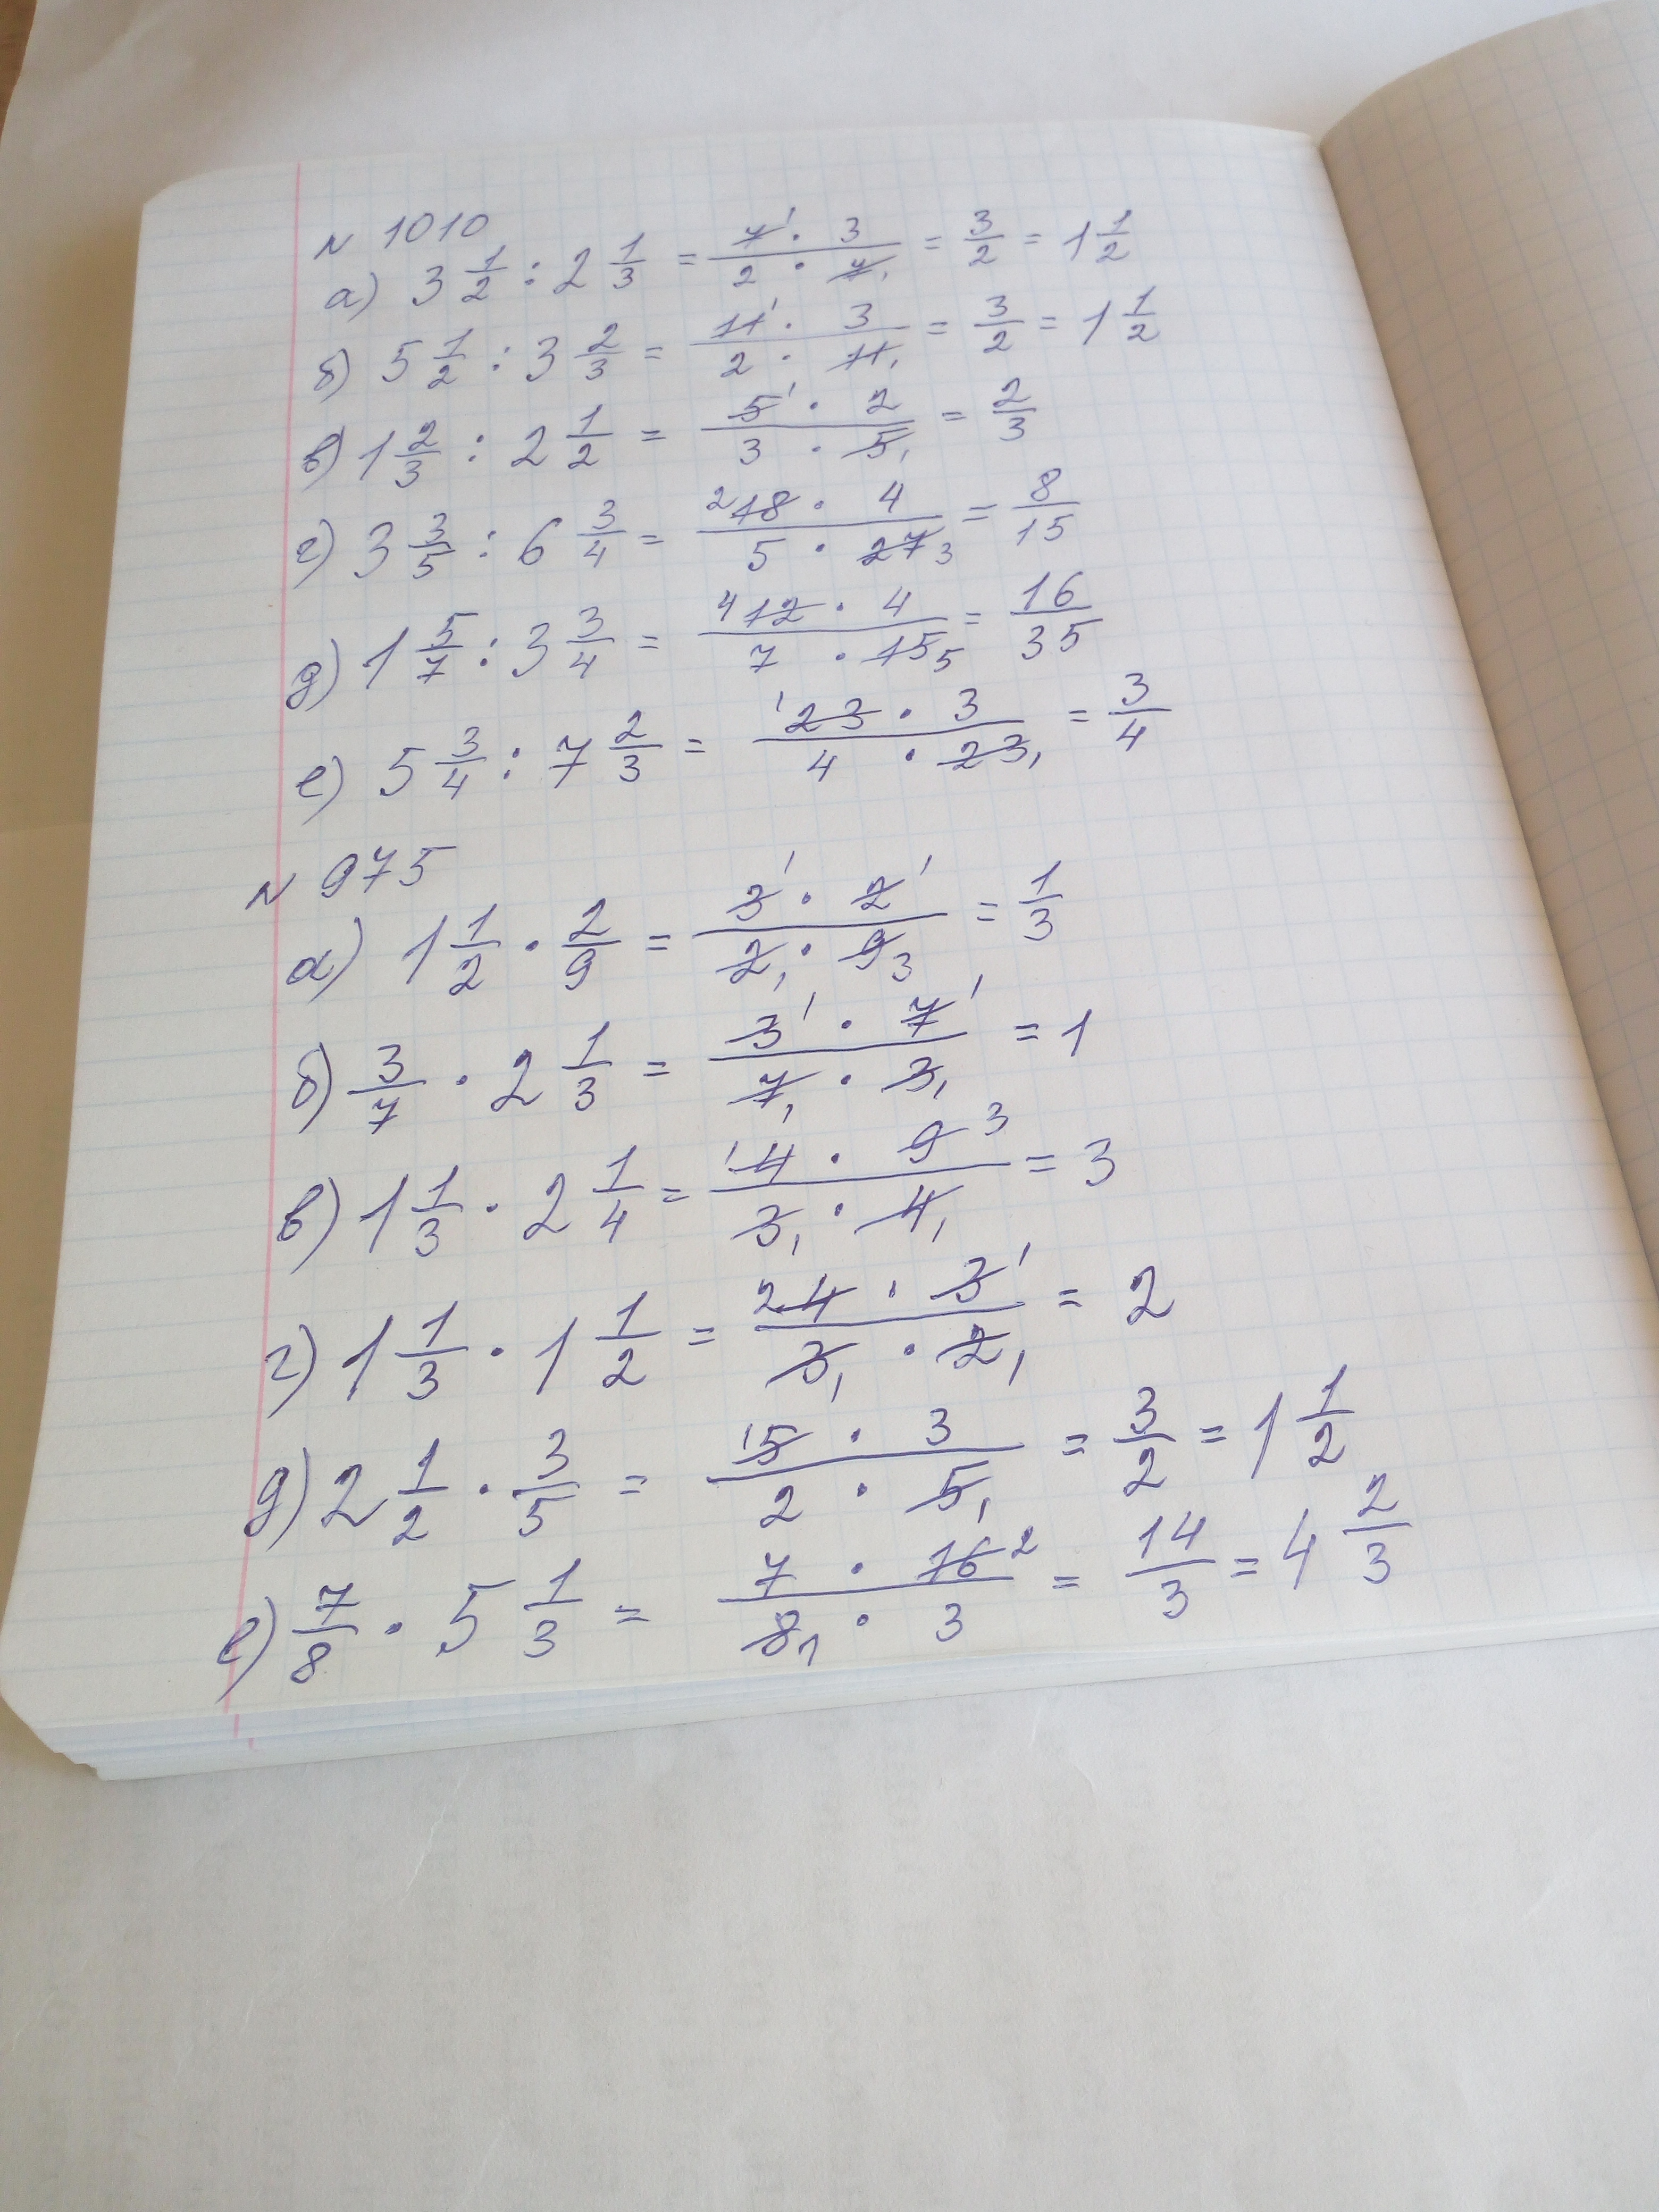 N 1010
а) 3 1/2 : 2 1/3 = (7¹ · 3)/(2 · 7₁) = 3/2 = 1 1/2
б) 5 1/2 : 3 2/3 = (11¹ · 3)/(2 · 11₁) = 3/2 = 1 1/2
в) 1 2/3 : 2 1/2 = (5¹ · 2)/(3 · 5₁) = 2/3
г) 3 3/5 : 6 3/4 = (²18 · 4)/(5 · 27₃) = 8/15
д) 1 5/7 : 3 3/4 = (⁴12 · 4)/(7 · 15₅) = 16/35
е) 5 3/4 : 7 2/3 = (¹23 · 3)/(4 · 23₁) = 3/4
N 975
а) 1 1/2 · 2/9 = (3¹ · 2¹)/(2₁ · 9₃) = 1/3
б) 3/7 · 2 1/3 = (3¹ · 7¹)/(7₁ · 3₁) = 1
в) 1 1/3 · 2 1/4 = (¹4 · 9³)/(3₁ · 4₁) = 3
г) 1 1/3 · 1 1/2 = (²4 · 3¹)/(3₁ · 2₁) = 2
д) 2 1/2 · 3/5 = (¹5 · 3)/(2 · 5₁) = 3/2 = 1 1/2
е) 7/8 · 5 1/3 = (7 · 16²)/(8₁ · 3) = 14/3 = 4 2/3